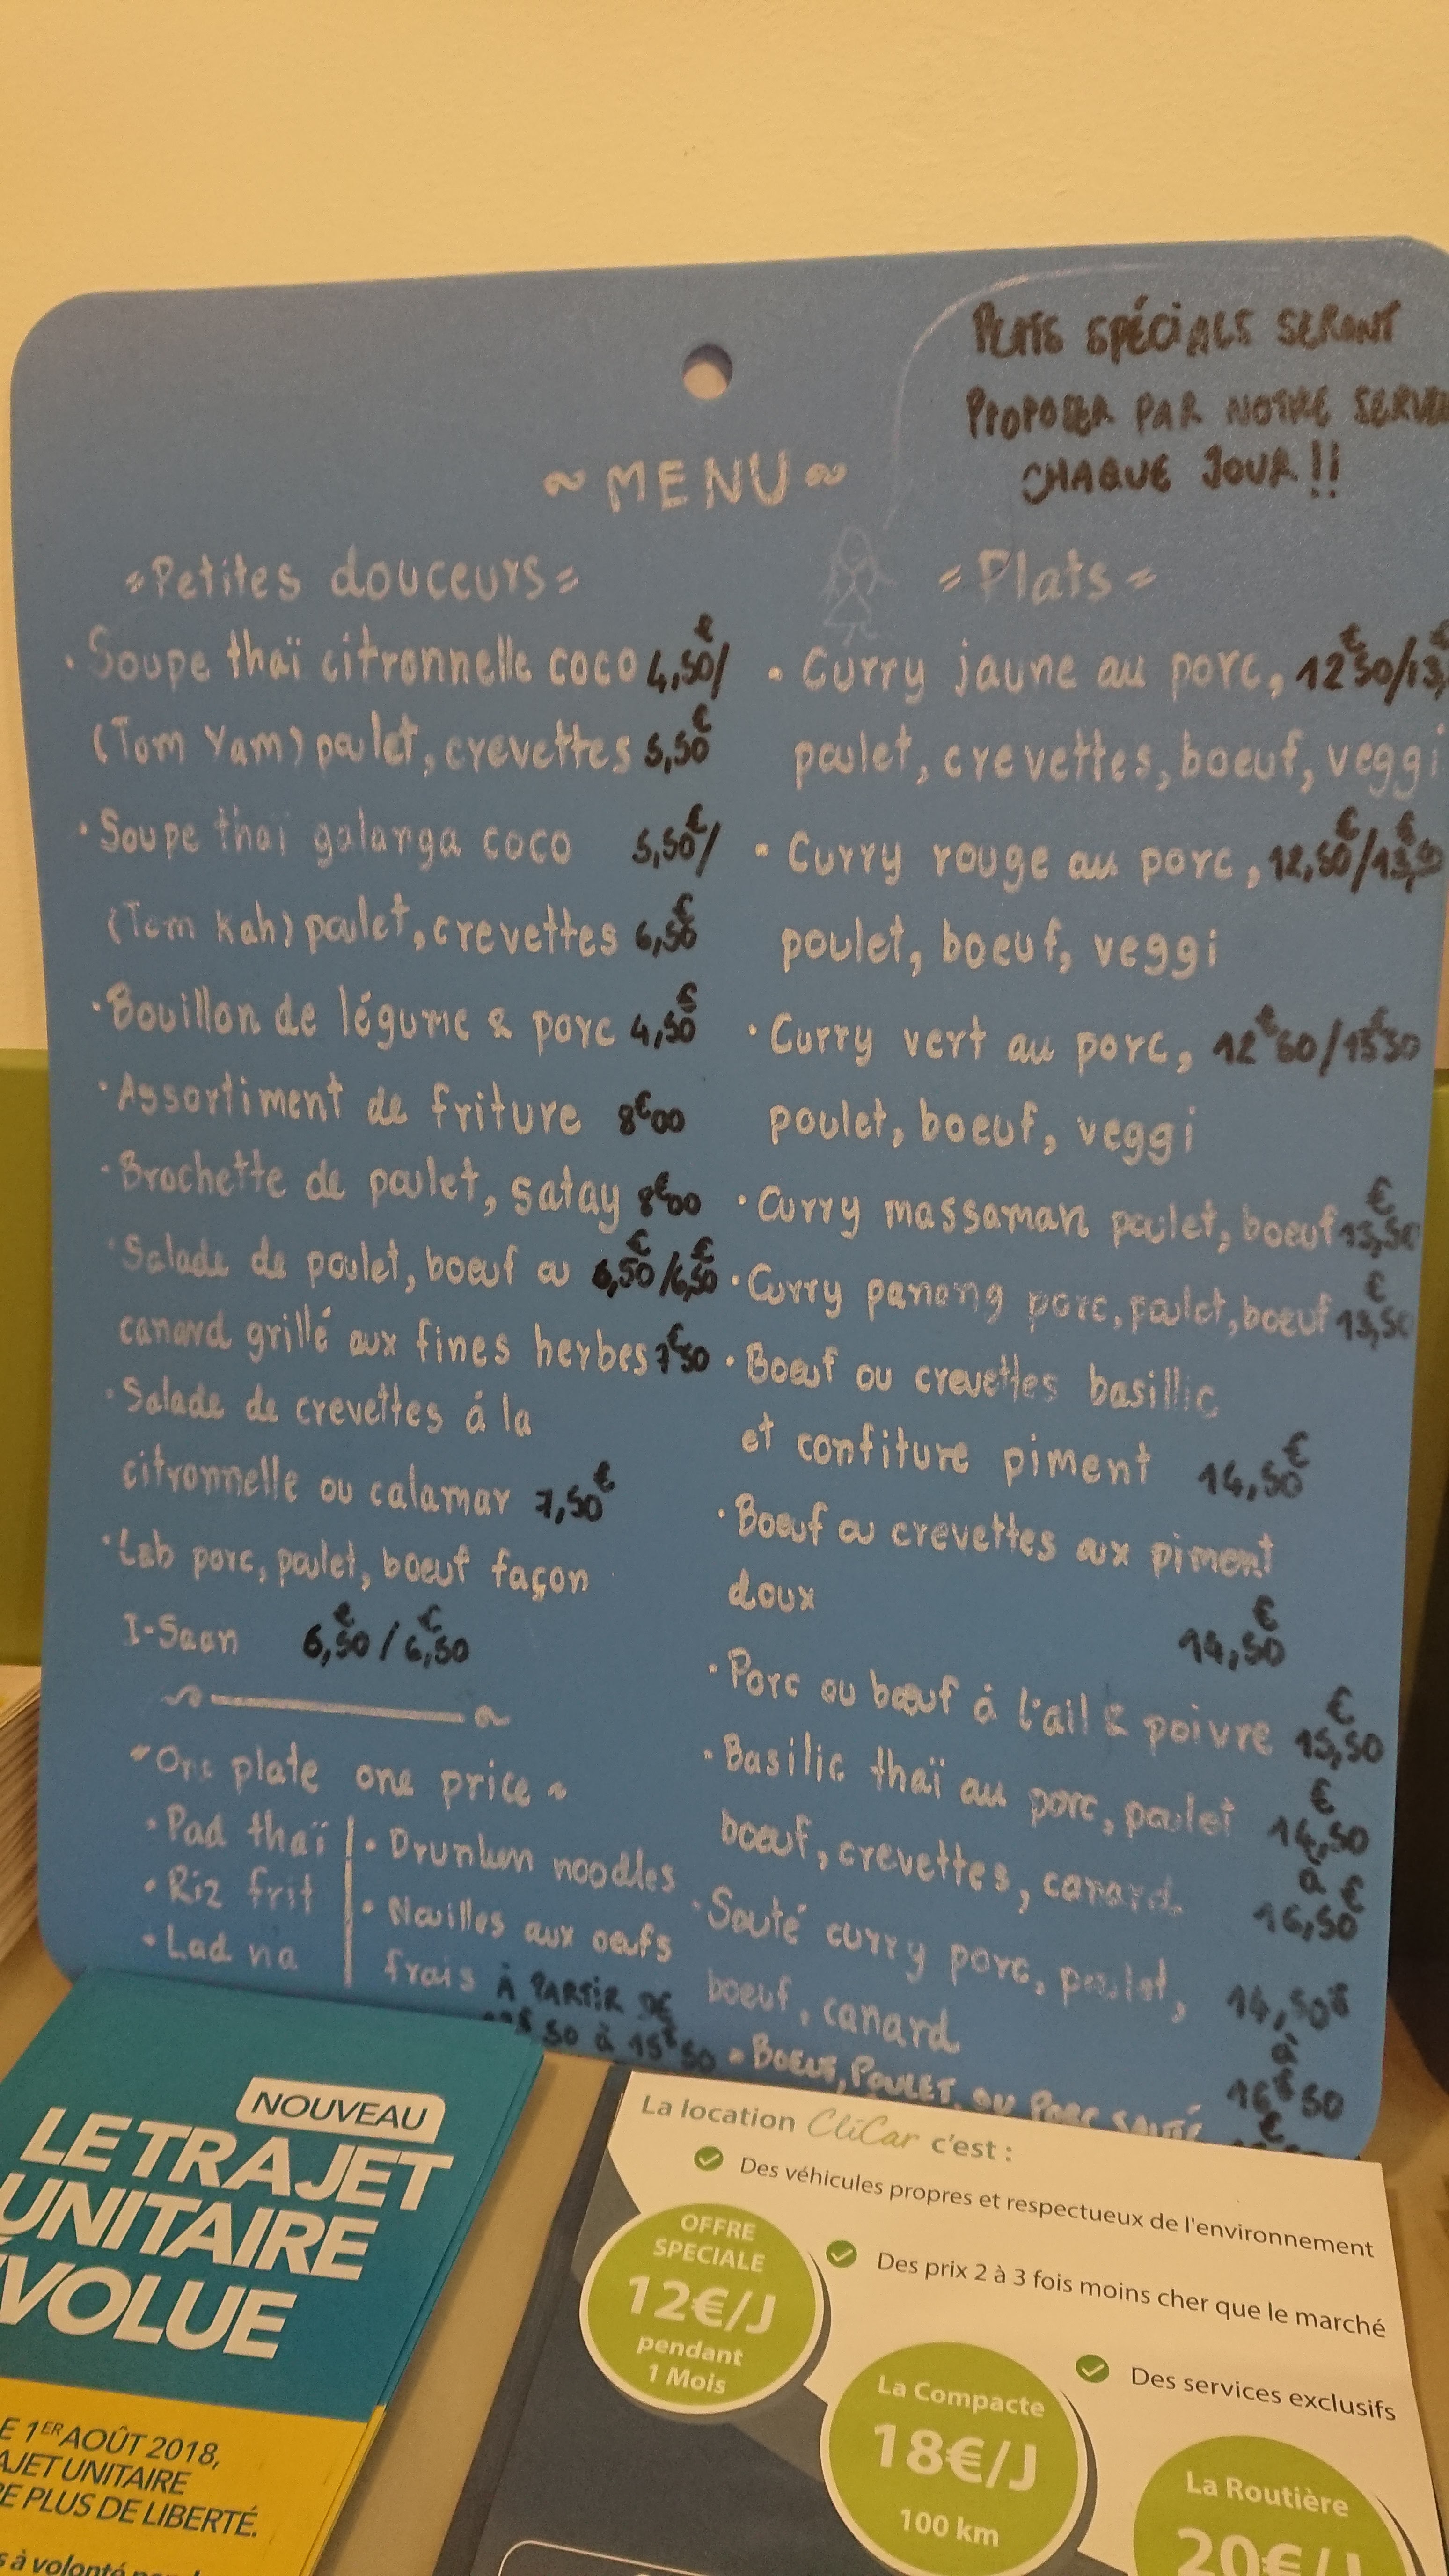 PLATS SPÉCIALS SERONT
PROPOSER PAR NOTRE
CHAQUE JOUR !!
~ MENU ~
Petites douceurs
· Soupe thaï citronnelle coco 4,50€/
(Tom Yam) poulet, crevettes 5,50€
· Soupe thaï galanga coco 5,50€/
(Tom Kah) poulet, crevettes 6,50€
· Bouillon de légume & porc 4,50€
· Assortiment de friture 8€00
· Brochette de poulet, satay 8€00
· Salade de poulet, boeuf ou 6,50€/6,50€
canard grillé aux fines herbes 7€50
· Salade de crevettes á la
citronnelle ou calamar 7,50€
· Lab porc, poulet, boeuf façon
I-Saan 6,50€ / 6,50€
~ One plate one price ~
· Pad thaï
· Riz frit
· Lad na
· Drunken noodles
· Nouilles aux oeufs
frais À PARTIR DE
50 à 15€50
= Plats =
· Curry jaune au porc, 12€50/13
poulet, crevettes, boeuf, veggi
· Curry rouge au porc, 12,50€/13,50€
poulet, boeuf, veggi
· Curry vert au porc, 12€50/13€50
poulet, boeuf, veggi
· Curry massaman poulet, boeuf 13,50€
· Curry panang porc, poulet, boeuf 13,50€
· Boeuf ou crevettes basillic
et confiture piment 14,50€
· Boeuf ou crevettes aux piment
doux
14,50€
· Porc ou bœuf à l'ail & poivre 15,50€
· Basilic thaï au porc, poulet 14,50€
bœuf, crevettes, canard. à 16,50€
· Sauté curry porc, poulet, 14,50€
boeuf, canard à
16€50
· BOEUF, POULET, OU PORC SAUTÉ
NOUVEAU
LE TRAJET
UNITAIRE
ÉVOLUE
E 1ER AOÛT 2018,
AJET UNITAIRE
E PLUS DE LIBERTÉ.
à volonté
La location CliCar c'est :
Des véhicules propres et respectueux de l'environnement
Des prix 2 à 3 fois moins cher que le marché
Des services exclusifs
OFFRE
SPECIALE
12€/J
pendant
1 Mois
La Compacte
18€/J
100 km
La Routière
20€/J